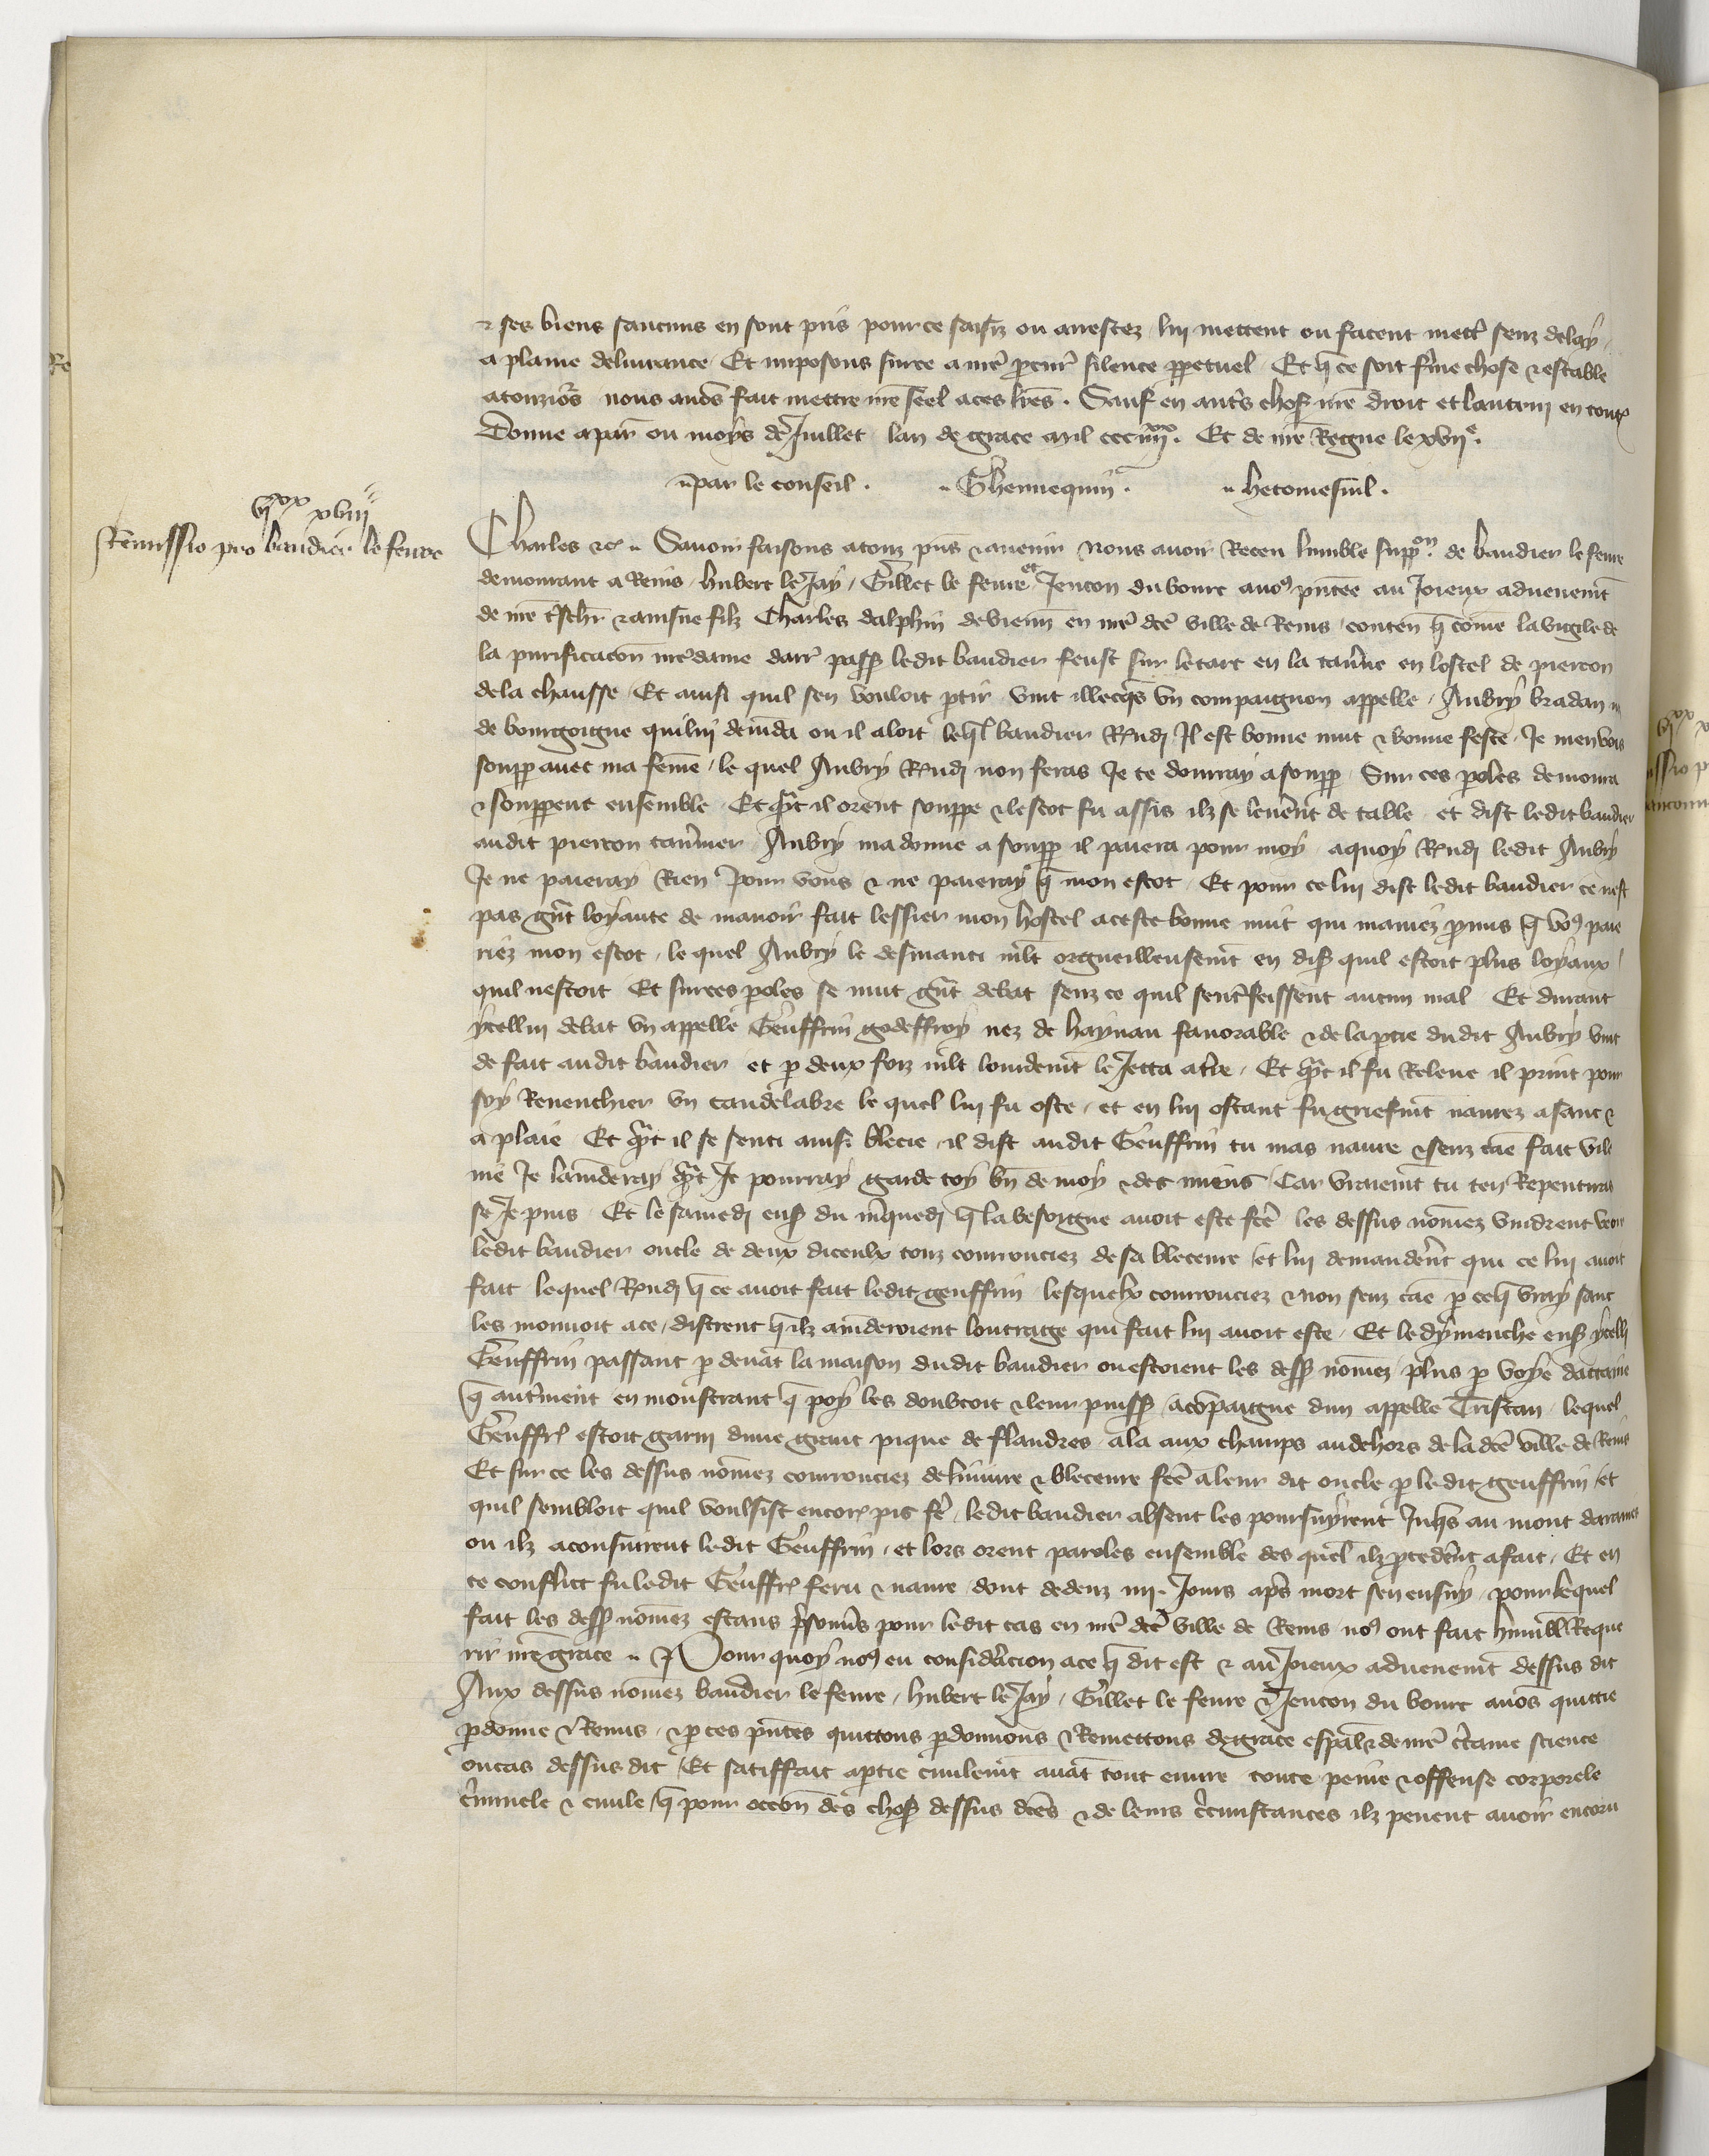 & ses biens saucuns en sont pris pource saisiz ou arrestez lui mettent ou facent mettr senz delay
a plaine delivrance Et imposons surce a nre procur silence ppetuel Et q ce soit ferme chose & estable
atouziors nous avons fait mettre nre seel aces lres. Sauf en autres chos nre droit et lautruy en toutes
Donne apar ou moys de Juillet lan de grace mil ccc iiiixx. Et de nre Regne le xviie.
par le conseil. Ghennequin. hetomesnil.
viixx xviii
Remissio pro baudier le fevre
Charles &c Savoir faisons atouz pns & avenir Nous avoir Receu humble suppon. de baudier le fevre
demourant a Reins, hubert le Jay, Gillet le fevre et Jencon du bourc avos pntee au Joieux advenemt
de nre tschr & ainsne filz Charles dalphin de vienn en nre dce ville de Reins, conten q come la vigile de
la purificacon nre dame darr pass ledit baudier feust sur le tart en la taverne en lostel de piercon
de la chausse, Et ainsi quil sen vouloit ptir vint illecqs vn compaignon appelle, Aubry bradan
de bourgoigne qui lui demda ou il aloit leql baudier Rndi Il est bonne nuit & bonne feste, Je men vois
soupp avec ma feme, le quel Aubry Rndi non feras Je te donrray a soupp Sur ces poles demoura
& soupperent ensemble Et qnt il orent souppe & lescot fu assis ilz se leverent de table et dist ledit baudier
audit piercon tavernier Aubry ma donne a soupp il paiera pour moy aquoy Rndi ledit Aubry
Je ne paieray Rien pour vous & ne paieray q mon escot, Et pour ce lui dist ledit baudier ce nest
pas gnt loyaute de mavoir fait lessier mon hostel aceste bonne nuit qui maviez pmis q vos paie
riez mon escot, le quel Aubry le desmanti mlt orgueilleusemt en dis quil estoit plus loyaux
quil nestoit Et surces poles se mut gnt debat senz ce quil sentrefeissent aucun mal Et durant
ycellui debat vn appelle Geuffrin godeffroy nez de haynau favorable & de la ptie dudit Aubry vint
de fait audit baudier et p deux foiz mlt lourdemt le Jetta atre, Et qnt il fu Releve il print pour
soy Revenchier vn candelabre le quel lui fu oste, et en lui ostant fu griefmt navrez a sanc &
a plaie Et qnt il se senti ainsi blecie, il dist audit Geuffrin tu mas navre & senz cae fait vile
nie Je lamderay qnt Je pourray garde toy bn de moy & des miens Car vraiemt tu ten Repentiras
se Je puis Et le samedi ens du mquedi q la besoigne avoit este fce les dessus nomez vindrent veoir
ledit baudier oncle de deux diceulx touz courrouciez de sa bleceure et lui demandernt qui ce lui avoit
fait lequel Rndi q ce avoit fait ledit geuffrin lesquelx courrouciez & non senz cae p ceq vray sanc
les mouvoit ace, distrent q ilz amderoient loutrage qui fait lui avoit este, Et le dymenche ens ycelli
Geuffrin passant p devat la maison dudit baudier ou estoient les dess nomez plus p voye dattaine
q autrement en monstrant q poy les doubtoit & leur puiss, acopaigne dun appelle Tristan lequel
Geuffr estoit garni dune grant pique de flandres, ala aux champs au dehors de la dce ville de Reins
Et sur ce les dessus nomez courrouciez de linjure & bleceure fce a leur dit oncle p ledit geuffrin, et
quil sembloit quil voulsist encor pis fe, ledit baudier absent les poursuyrent Juqs au mont daraines
ou ilz aconsuirent ledit Geuffrin, et lors orent paroles ensemble des quel ilz pcedernt a fait, Et en
ce conflict fu ledit Geuffr feru & navre, dont dedenz iiii. Jours aps mort sen ensuy, pour lequel
fait les dess nomez estans prisonns pour ledit cas en nre dce ville de Reins nos ont fait humbl Reque
rir nre grace Pour quoy nos eu consideracion ace q dit est & au Joieux advenemt dessus dit
Aux dessus nomez baudier le fevre, hubert le Jay, Gillet le fevre & Jencon du bourc avos quittie
pdonne & Remis, & p ces pntes quittons pdonnons & Remettons de grace espal & de nre ctaine science
oucas dessus dit, Et satiffait aptie civilemt avat tout euvre toute peine & offense corporele
criminele & civile q pour occon des chos dessus dces & de leurs circunstances ilz pevent avoir encoru